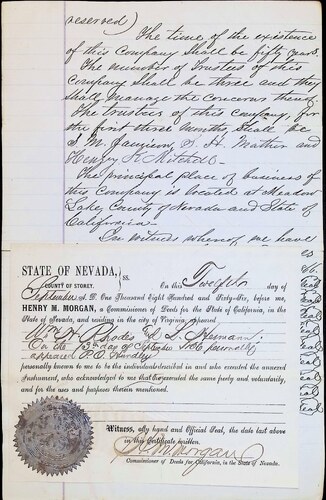 reserved)
The time of the existence
of this Company Shall be fifty years.
The number of Trustees of this
Company Shall be three and they
Shall manage the concerns thereof.
The trustees of this company, for
the first three months, Shall be
S. M. Jamison, S. H. Mather and
Henry K. Mitchell.
The principal place of business of
this Company is located at Meadow
Lake, County of Nevada and State of
California.
In witness whereof we have
STATE OF NEVADA,
COUNTY OF STOREY.
ss.
On this Twelfth day of
September A. D. One Thousand Eight Hundred and Sixty-Six, before me,
HENRY M. MORGAN, a Commissioner of Deeds for the State of California, in the
State of Nevada, and residing in the city of Virginia, appeared
Wm H. C. Rhodes
On the 13th day of September 1866 personally
appeared P. O. Hundley
personally known to me to be the individuals described in and who executed the annexed
Instrument, who acknowledged to me that they executed the same freely and voluntarily,
and for the uses and purposes therein mentioned.
Witness, my hand and Official Seal, the date last above
in this Certificate written.
H. M. Morgan
Commissioner of Deeds for California, in the State of Nevada.